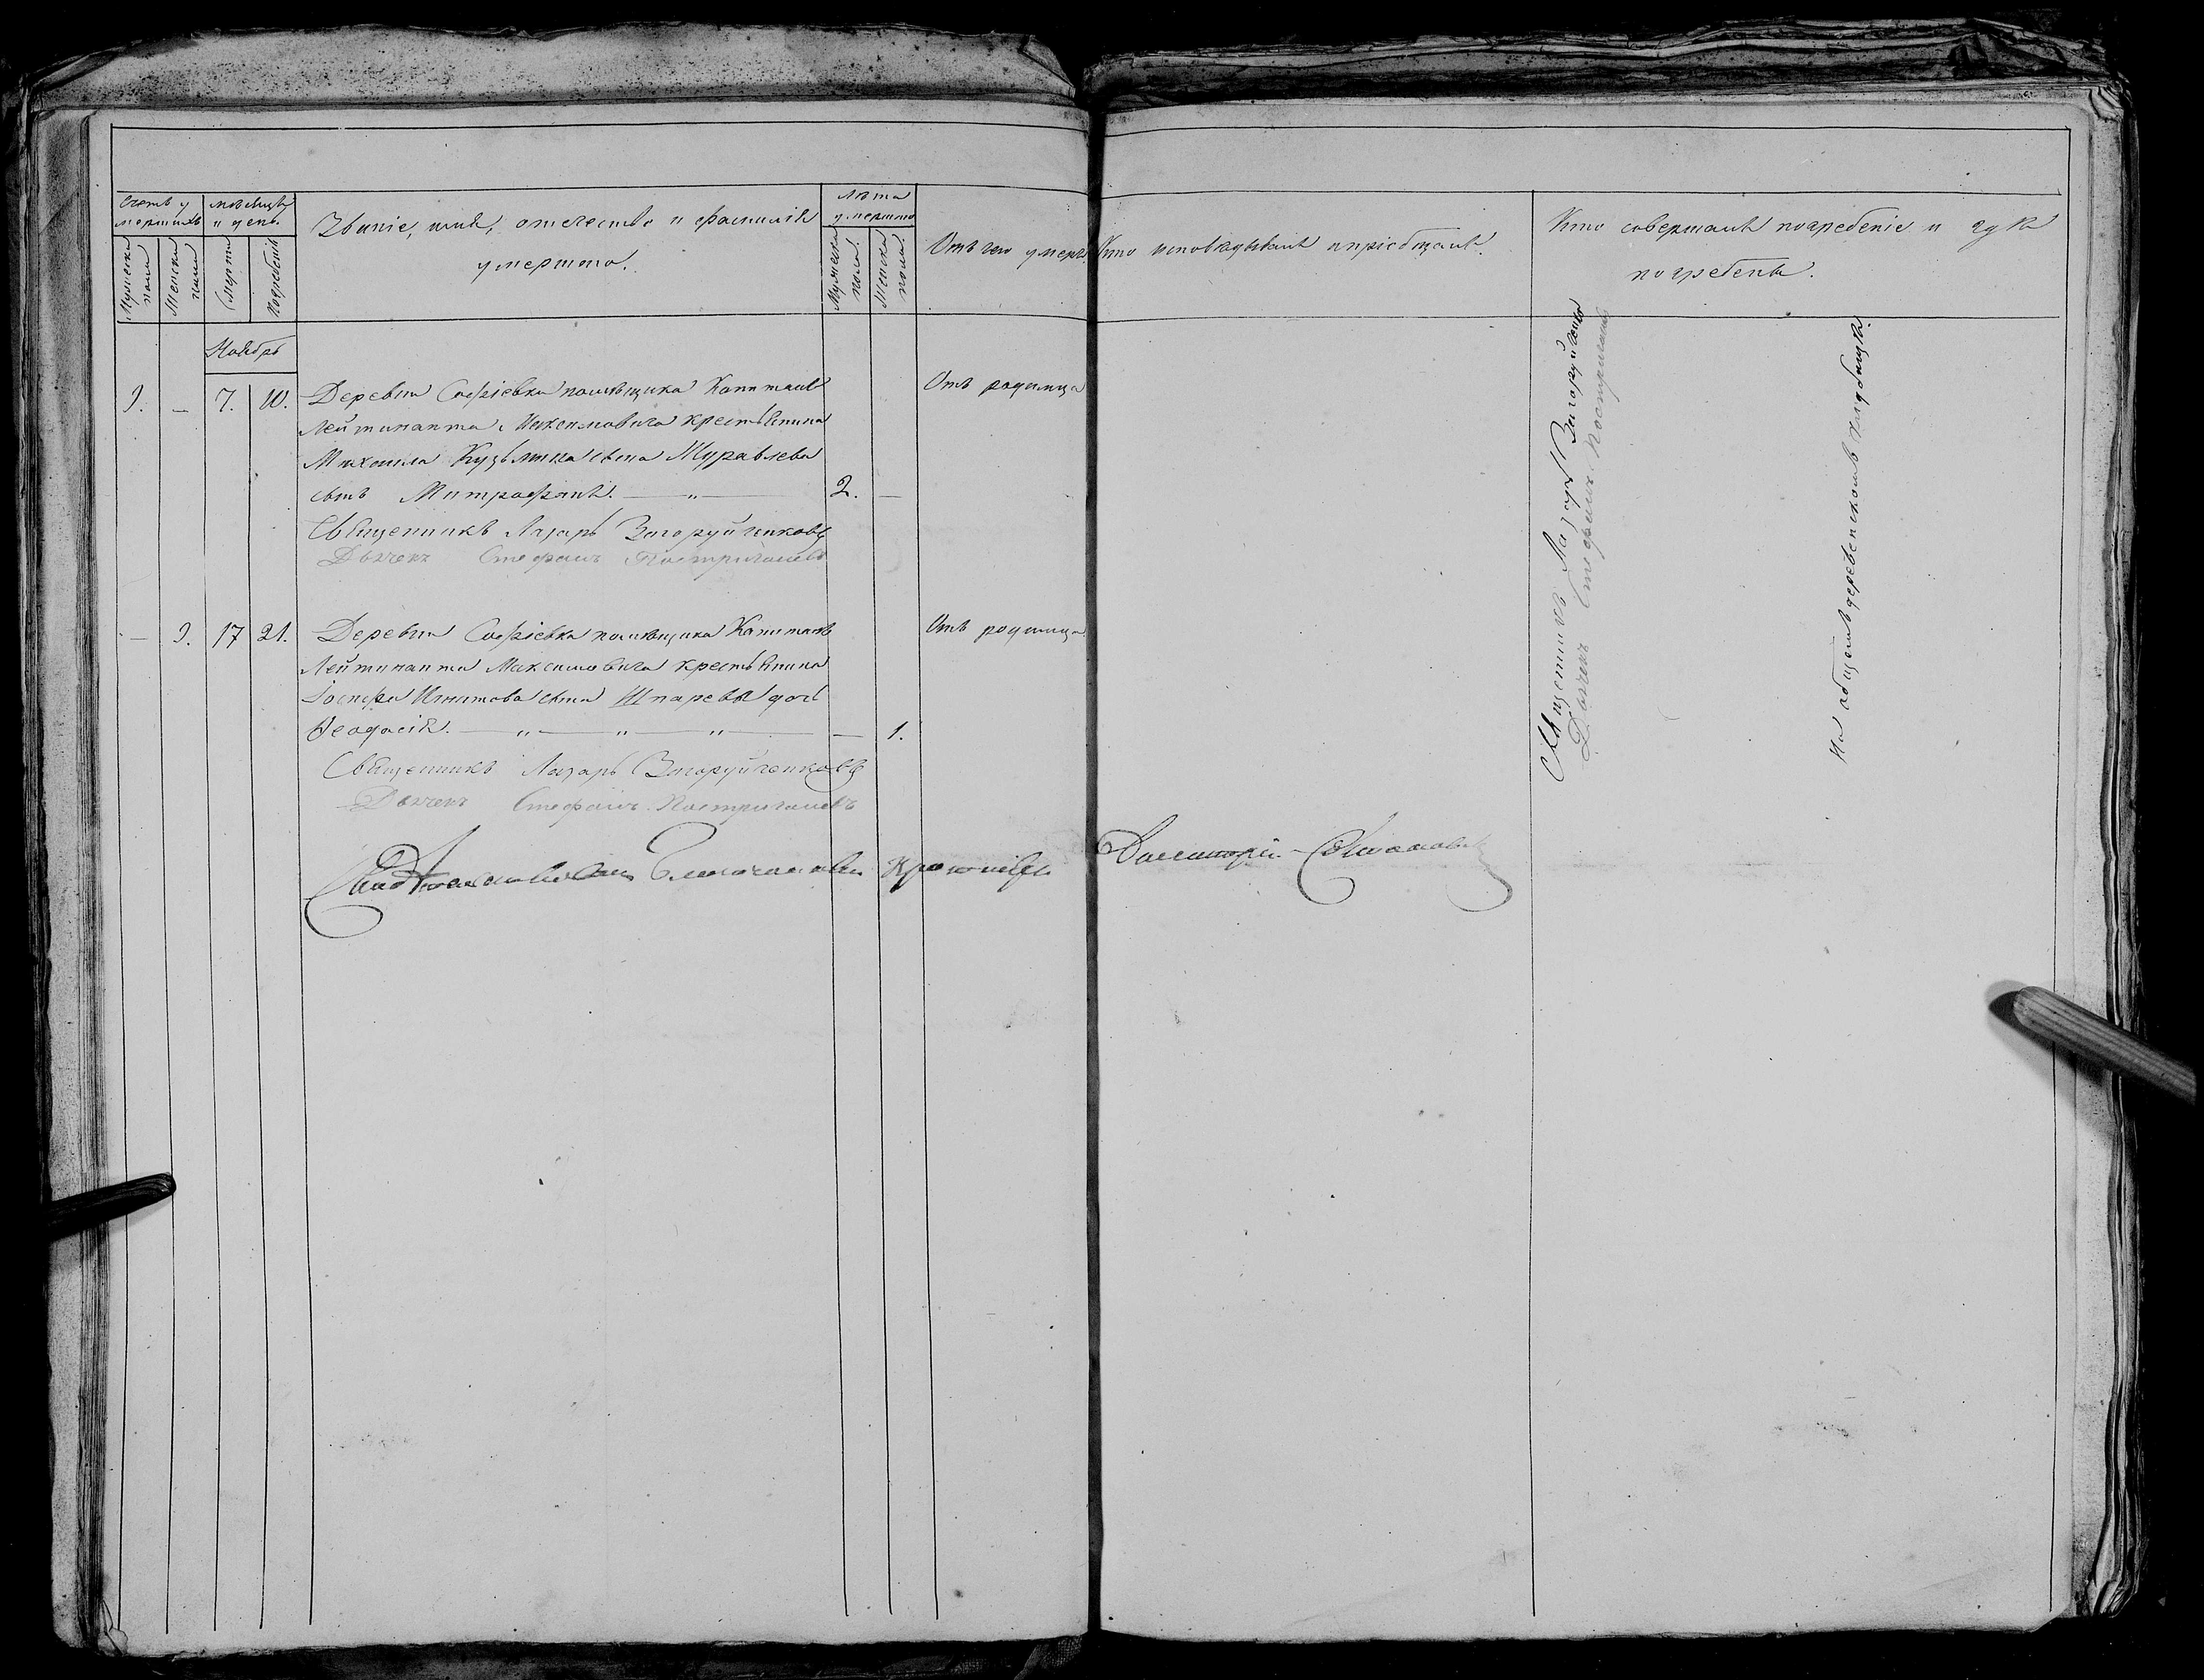 Счетъ у
мершихъ
Мужеска
пола
Женска
пола
мѣсяцъ
и день.
Смерти
Погребенія
Званіе, имя, отечество и фамилія
умершаго.
Лѣта
умершаго
Мужеска
пола.
Женска
пола.
Отъ чего умеръ.
Кто исповѣдывалъ и пріобщалъ.
Кто совершалъ погребеніе и гдѣ
погребены.
Ноябрь
1. — 7. 10. Деревни Софіевки помѣщика Капитанъ Отъ родимца
Лейтинанта Максимовича крестьянина
Михаила Кузьмина сына Журавлева
сынъ Митрофанъ. — „ — 2. —
Священникъ Лазарь Загоруйченковъ
Дьячекъ Стефанъ Постригачевъ
— 1. 17 21. Деревни Софіевки помѣщика Капитанъ Отъ родимца
Лейтинанта Максимовича крестьянина
Іосифа сына дочь
Ѳеодосія. — „ — „ — „ — — 1.
Священникъ Лазарь Загоруйченковъ
Дьячекъ Стефанъ Постригачевъ
Священникъ Лазарь Загоруйченковъ
Дьячекъ Стефанъ Постригачевъ
На общемъ деревенскомъ кладбищѣ.